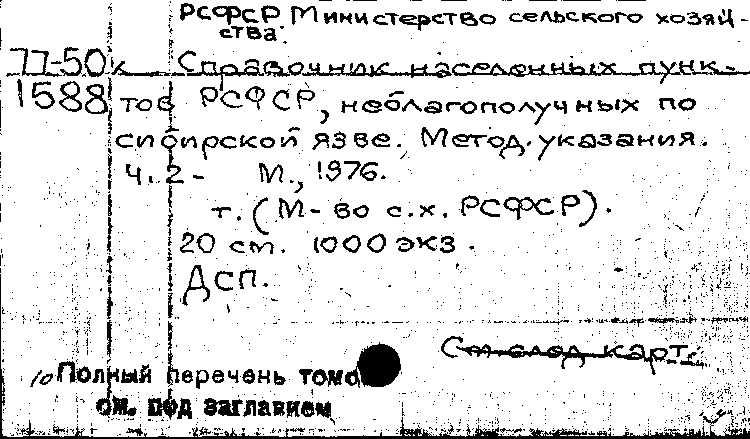 РСФСР Министерство сельского хозяй-
ства.
77-50к Справочник населенных пунк-
1588 тов РСФСР, неблагополучных по
сибирской язве. Метод. указания.
Ч. 2 - М., 1976.
т. (М-во с.х. РСФСР).
20 см. 1000 экз.
ДСП.
См след карт.
Полный перечень томо
см. под заглавием